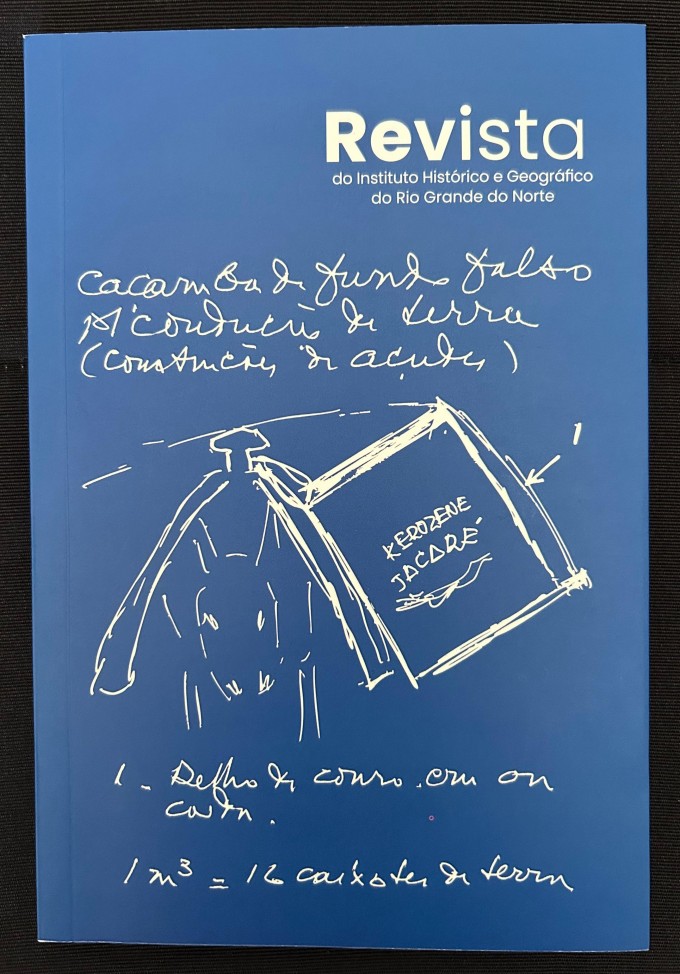 Revista
do Instituto Histórico e Geográfico
do Rio Grande do Norte
caçamba de fundo falso
p/ conducão de terra
(construcões de açudes)
1
KEROZENE
JACARÉ
1 - de couro
1 m³ = 16 caixotes de terra